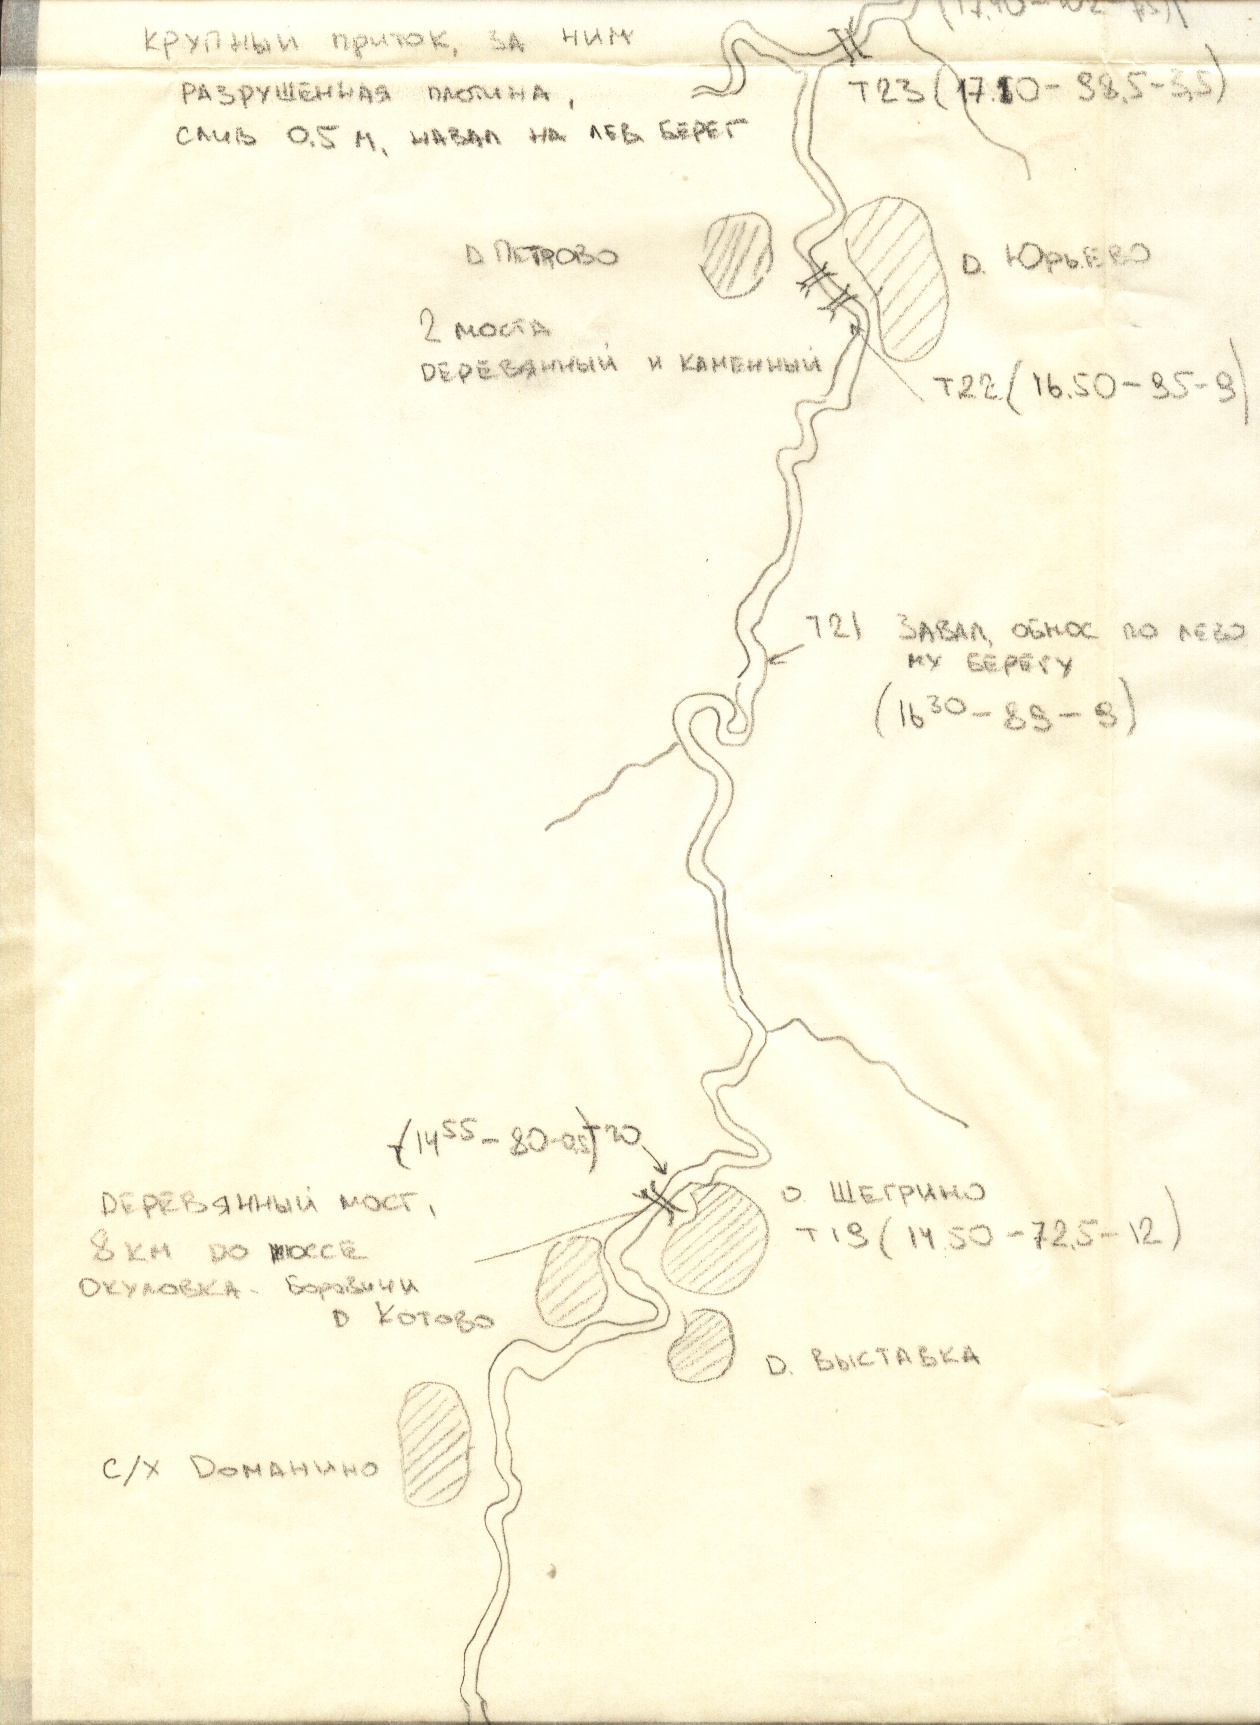 (17.40-102-7,5)
КРУПНЫЙ ПРИТОК, ЗА НИМ
РАЗРУШЕННАЯ ПЛОТИНА,
СЛИВ 0.5 М, НАВАЛ НА ЛЕВ. БЕРЕГ
Т23 (17.10-98,5-3,5)
Д ПЕТРОВО
Д. ЮРЬЕВО
2 МОСТА
ДЕРЕВЯННЫЙ И КАМЕННЫЙ
Т22 (16.50-95-9)
Т21 ЗАВАЛ, ОБНОС ПО ЛЕВО
МУ БЕРЕГУ
(16 30-89-9)
(14 55-80-0,5) Т20
ДЕРЕВЯННЫЙ МОСТ,
8 КМ ДО ШОССЕ
ОКУЛОВКА - БОРОВИЧИ
Д. ЩЕГРИНО
Т19 (14.50-72,5-12)
Д КОТОВО
Д. ВЫСТАВКА
С/Х ДОМАНИНО